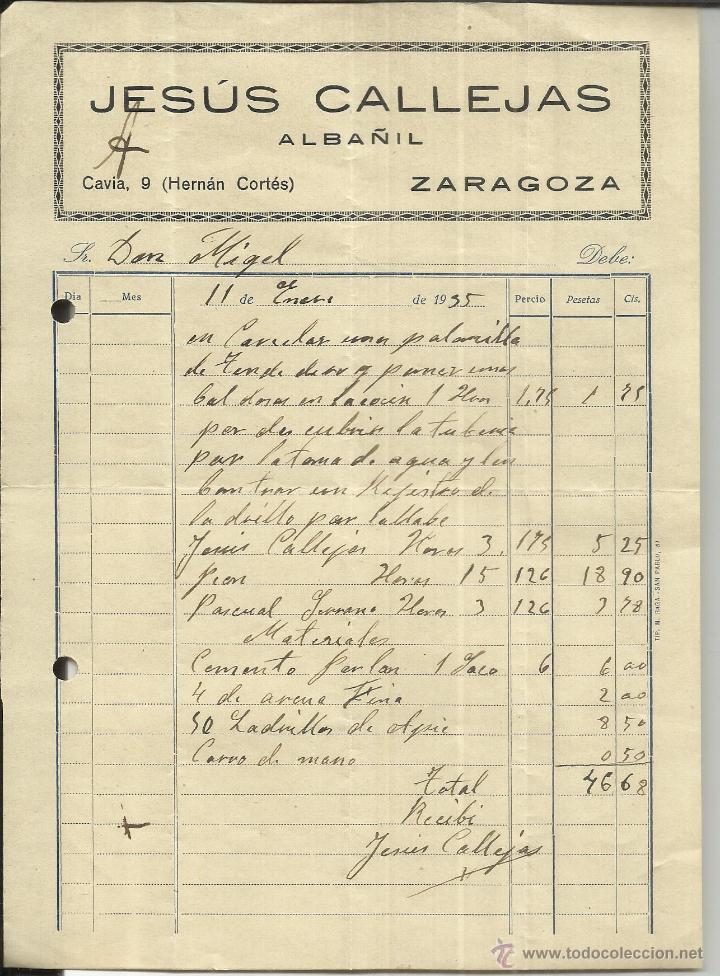 JESÚS CALLEJAS
ALBAÑIL
Cavia, 9 (Hernán Cortés) ZARAGOZA
Sr. Don Migel Debe:
Dia Mes 11 de Enero de 1935 Percio Pesetas Cts.
en una palomilla
de y poner unas
Baldosas en la 1 Hora 1,75 1 75
por descubrir la tuberia
por la toma de agua y
un Rejistro de
ladrillo por la llabe
Jesus Callejas Horas 3. 175 5 25
Peon Horas 15 126 18 90
Pascual Serrano Horas 3 126 3 78
Materiales
Cemento Porlan 1 Saco 6 6 00
4 de arena Fina 2 00
50 Ladrillos de 8 50
Carro de mano 0 50
Total 46 68
Recibi
Jesus Callejas
TIP. M. RAGA.-SAN PABLO, 67
www.todocoleccion.net